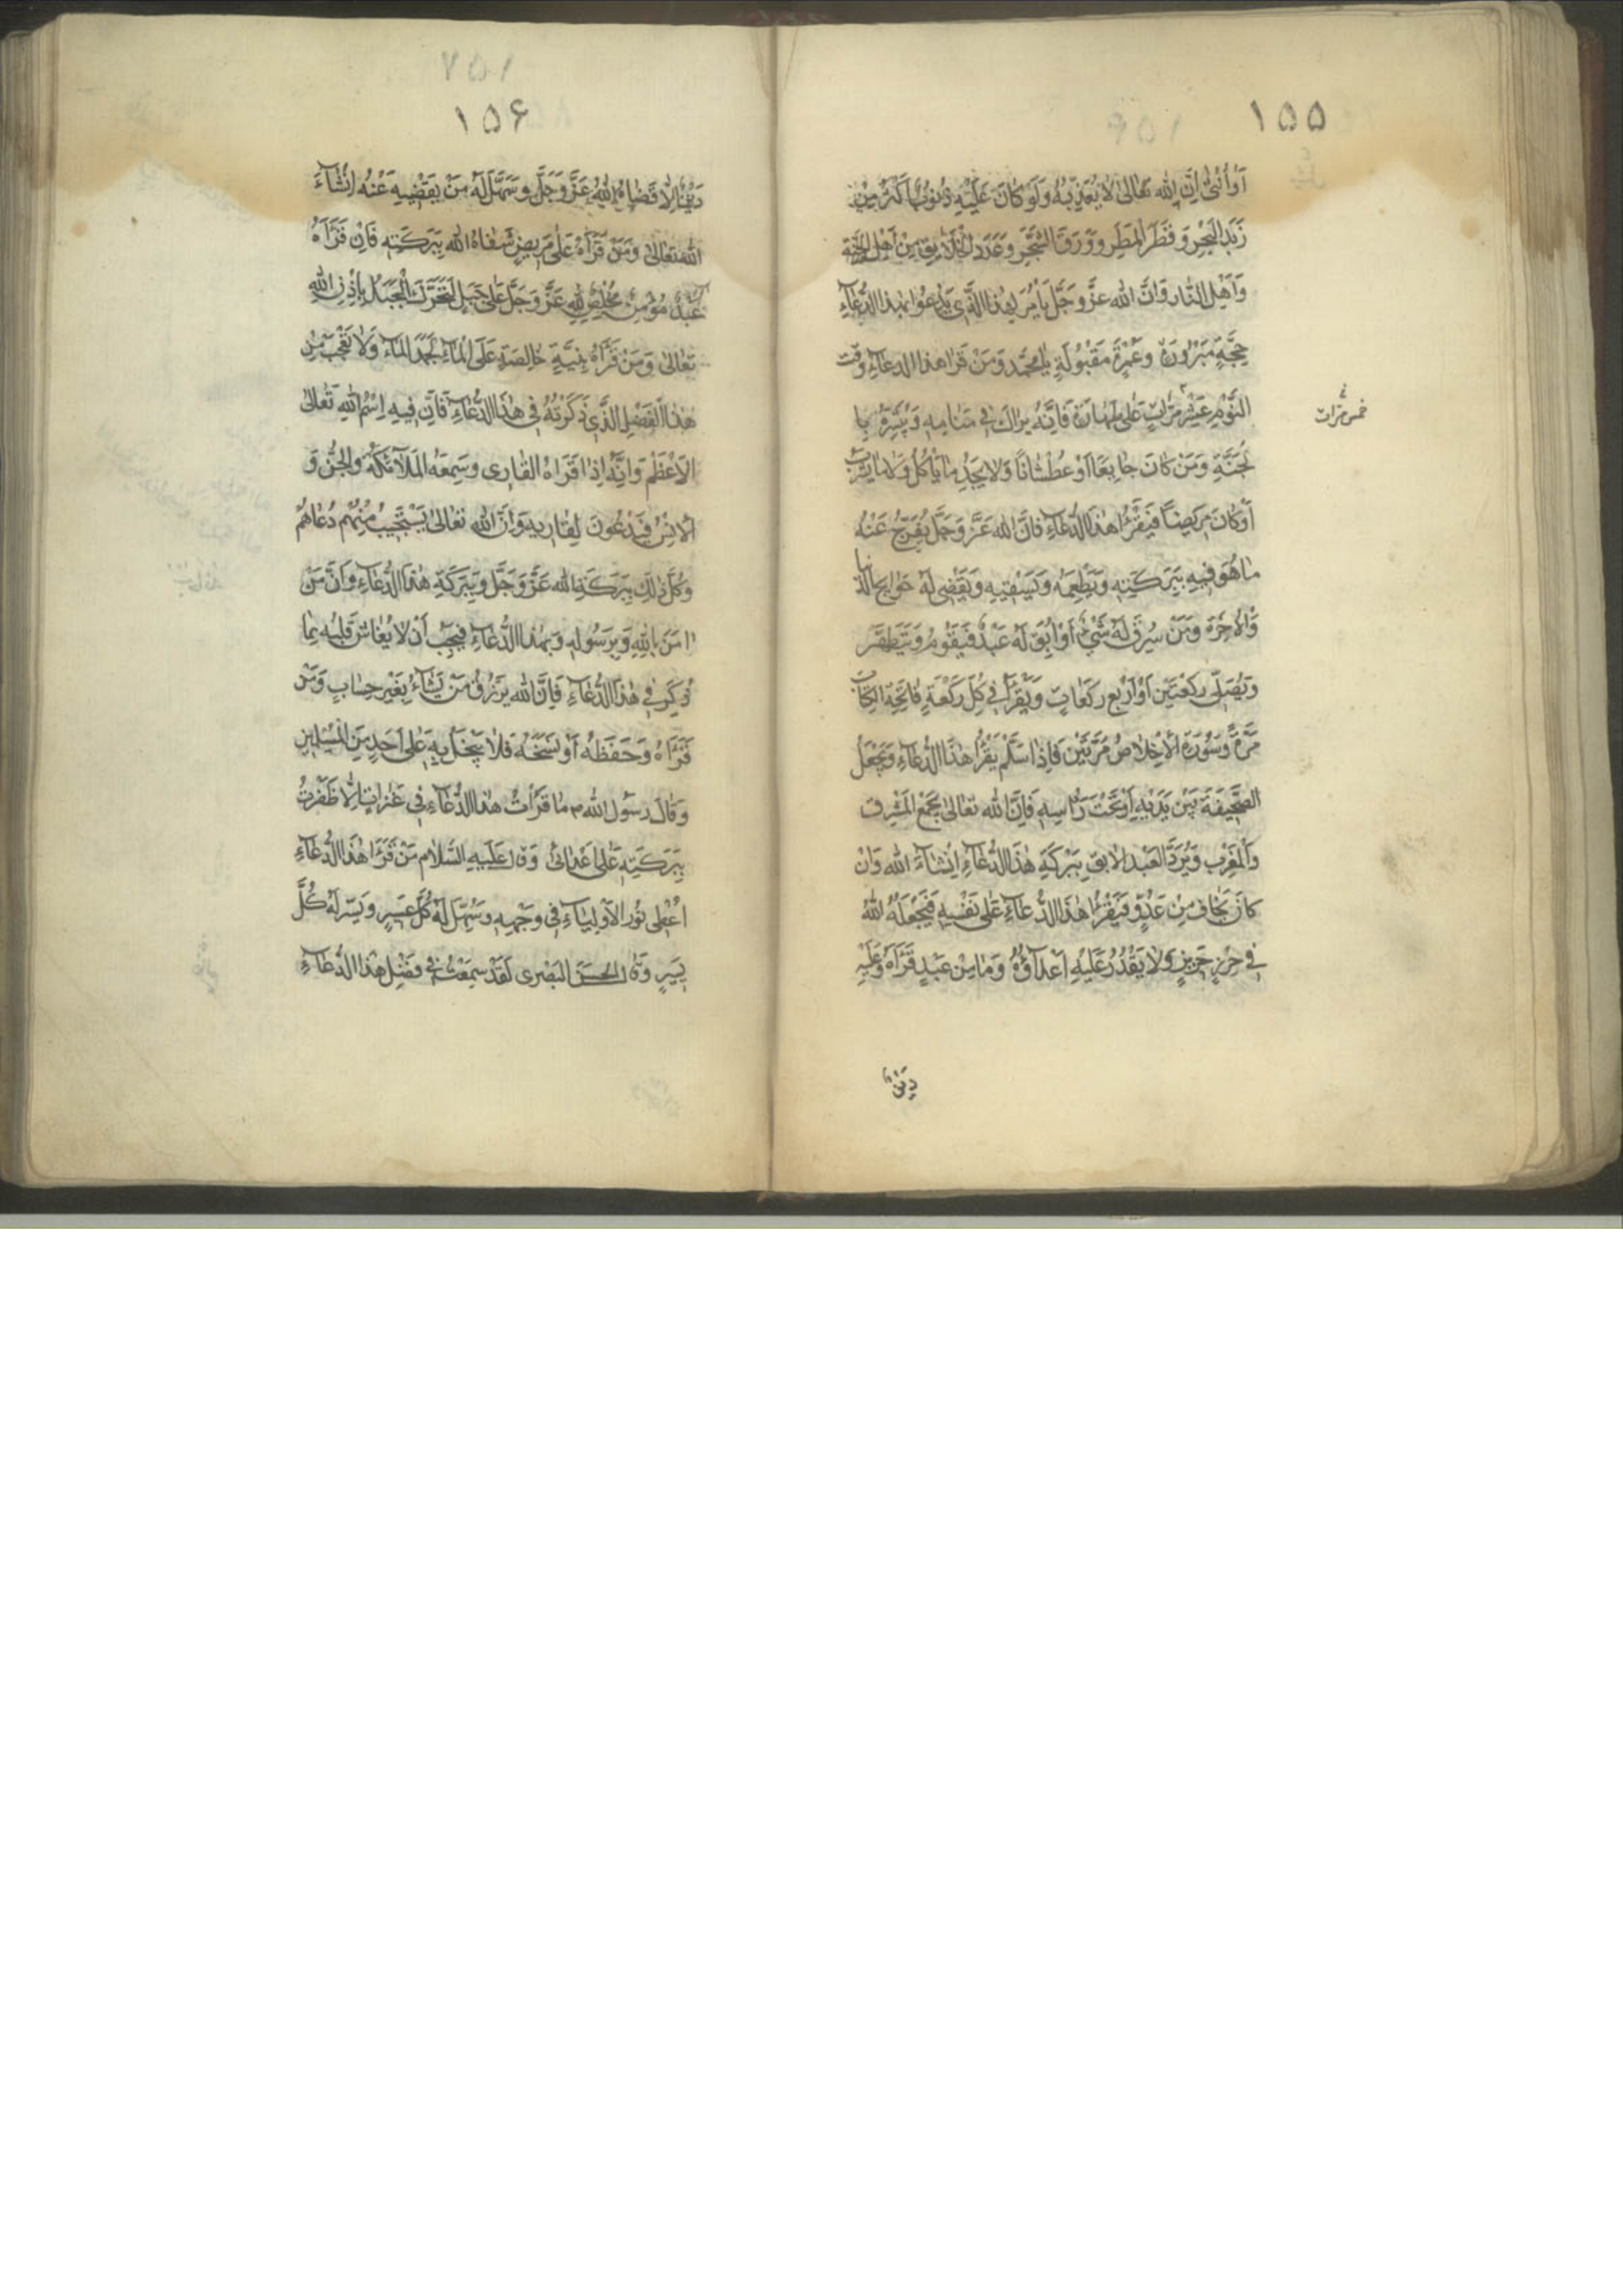 ۱۵۵
اَوْ اُنْثیٰ اِنَّ اللّٰه تَعٰالیٰ لٰا یُعَذِّبُهُ وَلَوْ کٰانَ عَلَیْهِ ذُنُوبٌ اَکْثَرُ مِنْ
زَبَدِ الْبَحْرِ وَ قَطَرِ الْمَطَرِ وَ وَرَقَ الشَّجَرِ وَ عَدَدِ الْخَلٰایِقِ مِنْ اَهْلِ الْجَنَّةِ
وَ اَهْلِ النّٰارِ وَ اِنَّ اللّٰه عَزَّ وَ جَلَّ یَأْمُرُ لِهٰذَا الَّذی یَدْعُوا بِهٰذَا الدُّعٰآءِ
حِجَّةٍ مَبْرُورَةٍ وَ عُمْرَةً مَقْبُولَةٍ یٰا مُحَمَّد وَ مَنْ قَرَا هٰذَا الدُّعٰآءِ وَقْت
النَّوْمِ عَشْرَ مَرّٰاتٍ عَلیٰ طَهٰارَةٍ فَاِنَّهُ یَرٰاكَ فی مَنٰامِهِ وَ یُبَشِّرُهُ بِا
خمس مرّات
لْجَنَّةِ وَ مَنْ کٰانَ جٰایِعًا اَوْ عَطْشٰانًا وَ لٰا یَجِدُ مٰا یَأْکُلُ وَ لٰا مٰا یَشْرَبُ
اَوْ کٰانَ مَرِیضًا فَیَقْرَأُ هٰذَا الدُّعٰآءِ فَاِنَّ اللّٰه عَزَّ وَ جَلَّ یُفَرِّجُ عَنْهُ
مٰا هُوَ فِیهِ بِبَرَکَتِهِ وَ یُطْعِمُهُ وَ یَسْقِیهِ وَ یَقْضی لَهُ حَوٰایِجَ الدُّنْیٰا
وَ الْاٰخِرَة وَ مَنْ سُرِقَ لَهُ شَیْءٌ اَوْ اَبِقَ لَهُ عَبْدٌ فَیَقُومُ وَ یَتَطَهَّرُ
وَ یُصَلِّی رَکْعَتَیْنِ اَوْ اَرْبَعَ رَکَعٰاتٍ وَ یَقْرَأُ فی کُلِّ رَکْعَةٍ فٰاتِحَةَ الْکِتٰابِ
مَرَّةً وَ سُورَةَ الْاِخْلٰاصِ مَرَّتَیْنِ فَاِذٰا سَلَّمَ یَقْرَأُ هٰذَا الدُّعٰآءِ وَ یَجْعَلُ
الصَّحِیفَةَ بَیْنَ یَدَیْهِ اَوْ تَحْتَ رَأْسِهِ فَاِنَّ اللّٰه تَعٰالیٰ یَجْمَعُ الْمَشْرِقَ
وَ الْمَغْرِبَ وَ یُرَدُّ الْعَبْد الْاٰبِقَ بِبَرَکَةِ هٰذَا الدُّعٰآءِ اِنْشٰآءَ اللّٰه وَ اِنْ
کٰانَ یَخٰافُ مِنْ عَدُوٍّ فَیَقْرَأُ هٰذَا الدُّعٰآءِ عَلیٰ نَفْسِهِ فَیَجْعَلُهُ اللّٰهُ
فی حِرْزٍ حَرِیزٍ وَ لٰا یَقْدُرُ عَلَیْهِ اَعْدٰآؤُهُ وَ مٰا مِنْ عَبْدٍ قَرَأَهُ وَ عَلَیْهِ
دَیْنٌ
۱۵۶
دَیْنٌ اِلّٰا قَضٰاهُ اللّٰهُ عَزَّ وَ جَلَّ وَ سَهَّلَ لَهُ مَنْ یَقْضِیهِ عَنْهُ اِنْشٰآءَ
اللّٰه تَعٰالیٰ وَ مَنْ قَرَأَهُ عَلیٰ مَرِیضٍ شَفٰاهُ اللّٰه بِبَرَکَتِهِ فَاِنْ قَرَأَهُ
عَبْدٌ مُؤْمِنٌ مُخْلِصٌ لِلّٰهِ عَزَّ وَ جَلَّ عَلیٰ جَبَلٍ لَتَحَرَّكَ الْجَبَلُ بِاِذْنِ اللّٰهِ
تَعٰالیٰ وَ مَنْ قَرَأَهُ بِنِیَّةٍ خٰالِصَةٍ عَلَی الْمٰآءِ لَجَمَدَ الْمٰآءُ وَ لٰا تَعْجَبْ مِنْ
هٰذَا الْفَضْلِ الَّذی ذَکَرْتُهُ فی هٰذَا الدُّعٰآءِ فَاِنَّ فِیهِ اِسْمُ اللّٰهِ تَعٰالیٰ
الْاَعْظَم وَ اِنَّهُ اِذٰا قَرَاهُ الْقٰاری وَ سَمِعَهُ الْمَلٰآئِکَةُ وَ الْجِنُّ وَ
الْاِنْسُ فَیَدْعُونَ لِقٰارِیهِ وَ اِنَّ اللّٰه تَعٰالیٰ یَسْتَجِیبُ مِنْهُمْ دُعٰاهُمْ
وَ کُلُّ ذٰلِكَ بِبَرَکَةِ اللّٰه عَزَّ وَ جَلَّ وَ بِبَرَکَةِ هٰذَا الدُّعٰآءِ وَ اِنَّ مَنْ
اٰمَنَ بِاللّٰهِ وَ بِرَسُولِهِ وَ بِهٰذَا الدُّعٰآءِ فَیَجِبُ اَنْ لٰا یُغٰاشَّ قَلْبُهُ بِمٰا
ذُکِرَ فی هٰذَا الدُّعٰآءِ فَاِنَّ اللّٰه یَرْزُقُ مَنْ یَشٰآءُ بِغَیْرِ حِسٰابٍ وَ مَنْ
قَرَأَهُ وَ حَفَظَهُ اَوْ نَسَخَهُ فَلٰا یَبْخَلْ بِهِ عَلیٰ اَحَدٍ مِنَ الْمُسْلِمِینَ
وَ قٰالَ رَسُول اللّٰه ص مٰا قَرَأْتُ هٰذَا الدُّعٰآءِ فی غَزٰاتٍ اِلّٰا ظَفَرْتُ
بِبَرَکَتِهِ عَلیٰ اَعْدٰائی وَ قٰالَ عَلَیْهِ السَّلٰام مَنْ قَرَأَ هٰذَا الدُّعٰآءِ
اُعْطِیَ نُورُ الْاَوْلِیٰآءِ فی وَجْهِهِ وَ سُهِّلَ لَهُ کُلُّ عَسِیرٍ وَ یُسِّرَ لَهُ کُلُّ
یَسِیرٍ وَ قٰالَ الْحَسَنُ الْبَصْری لَقَدْ سَمِعْتُ فی فَضْلِ هٰذَا الدُّعٰآءِ